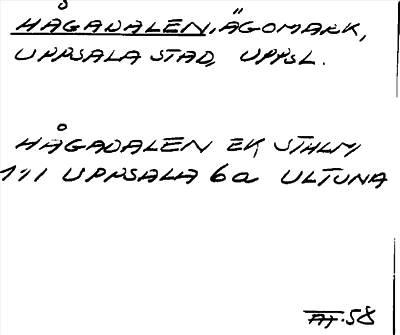 HÅGADALEN, ÄGOMARK,
UPPSALA STAD, UPPSL.
HÅGADALEN EK STHLM
1:1 UPPSALA 6a ULTUNA
AJ.58